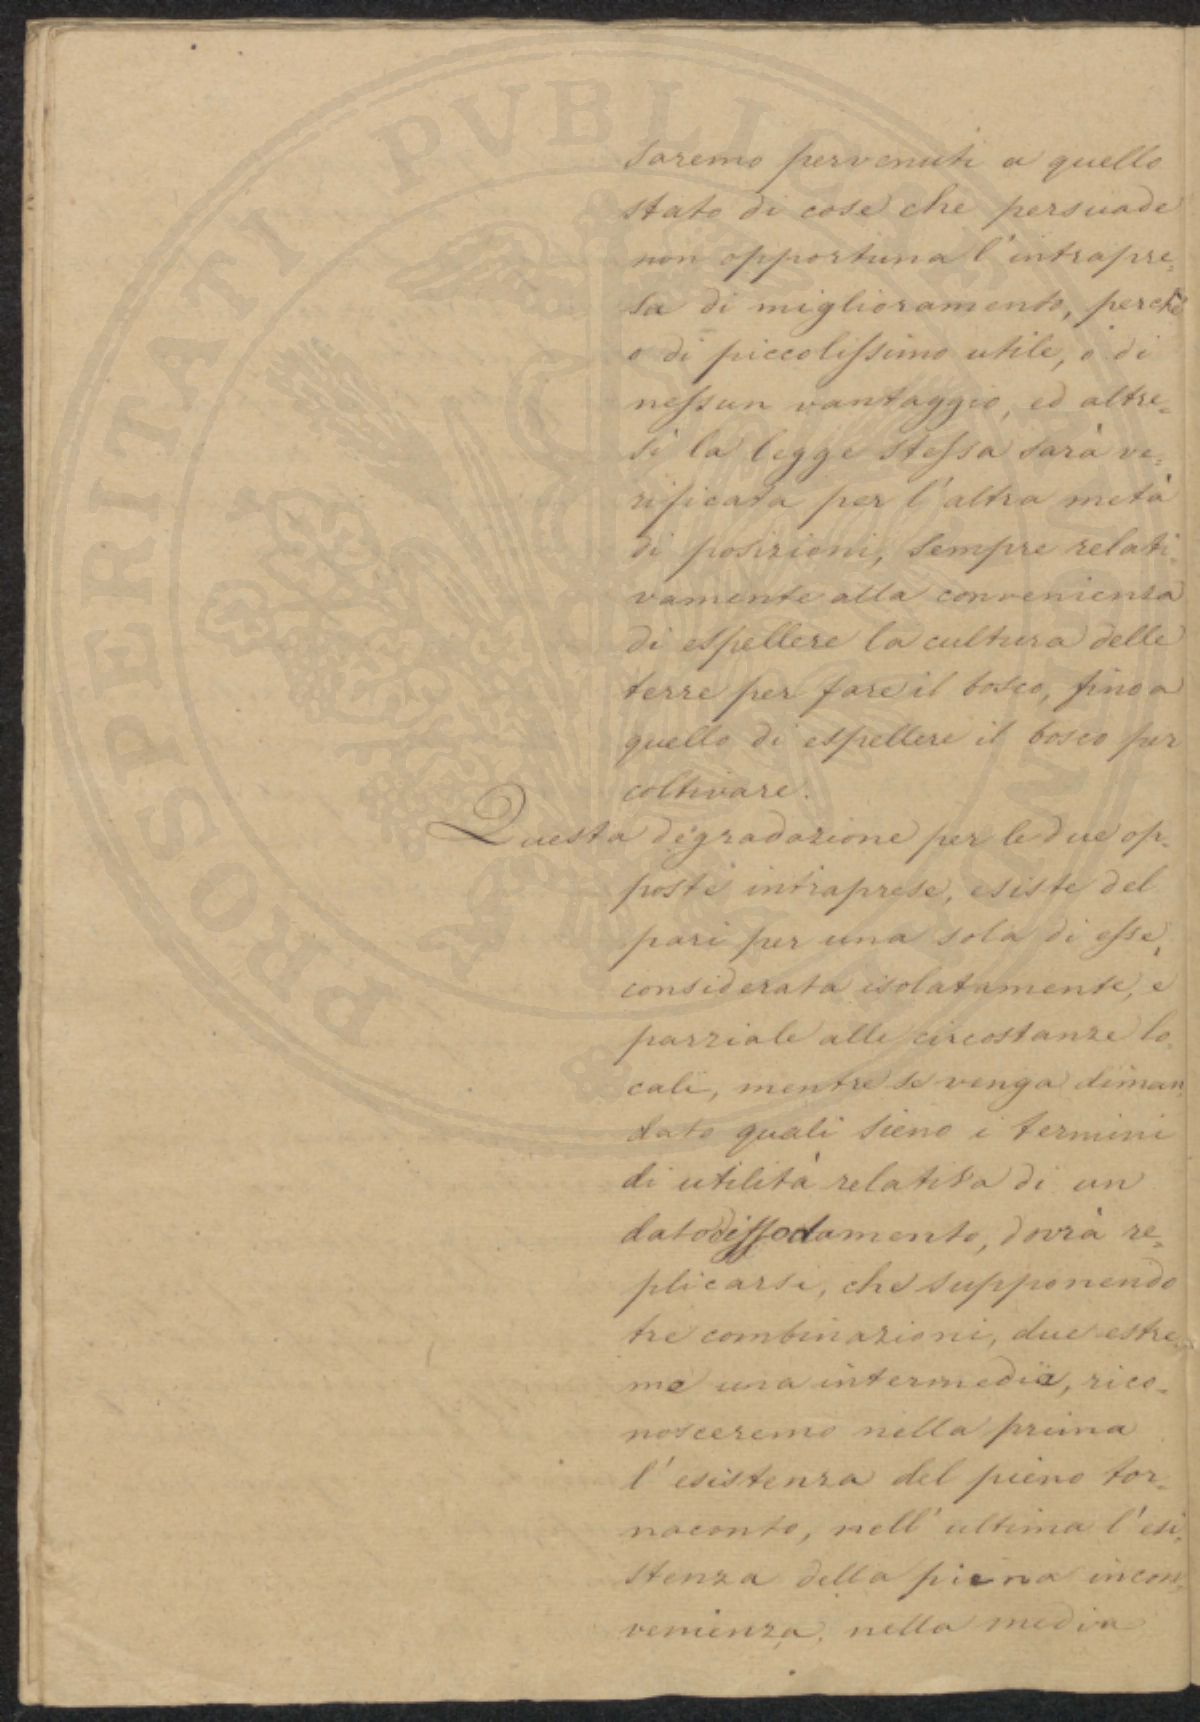 saremo pervenuti a quello
stato di cose che persuade
non opportuna l'intrapre=
sa di miglioramento, perchè
o di piccolissimo utile, o di
nessun vantaggio, ed altre=
sì la legge stessa sarà ve=
rificata per l'altra metà
di posizioni, sempre relati=
vamente alla convenienza
di espellere la cultura delle
terre per fare il bosco, fino a
quello di espellere il bosco per
coltivare.
Questa degradazione per le due op=
poste intraprese, esiste del
pari per una sola di esse,
considerata isolatamente, e
parziale alle circostanze lo=
cali, mentre se venga diman=
dato quali sieno i termini
di utilità relativa di un
dato dissodamento, dovrà re=
plicarsi, che supponendo
tre combinazioni, due estre=
me una intermedia, rico=
nosceremo nella prima
l'esistenza del pieno tor=
naconto, nell'ultima l'esi=
stenza della piena incon=
venienza, nella media
PROSPERITATI PVBLICAE